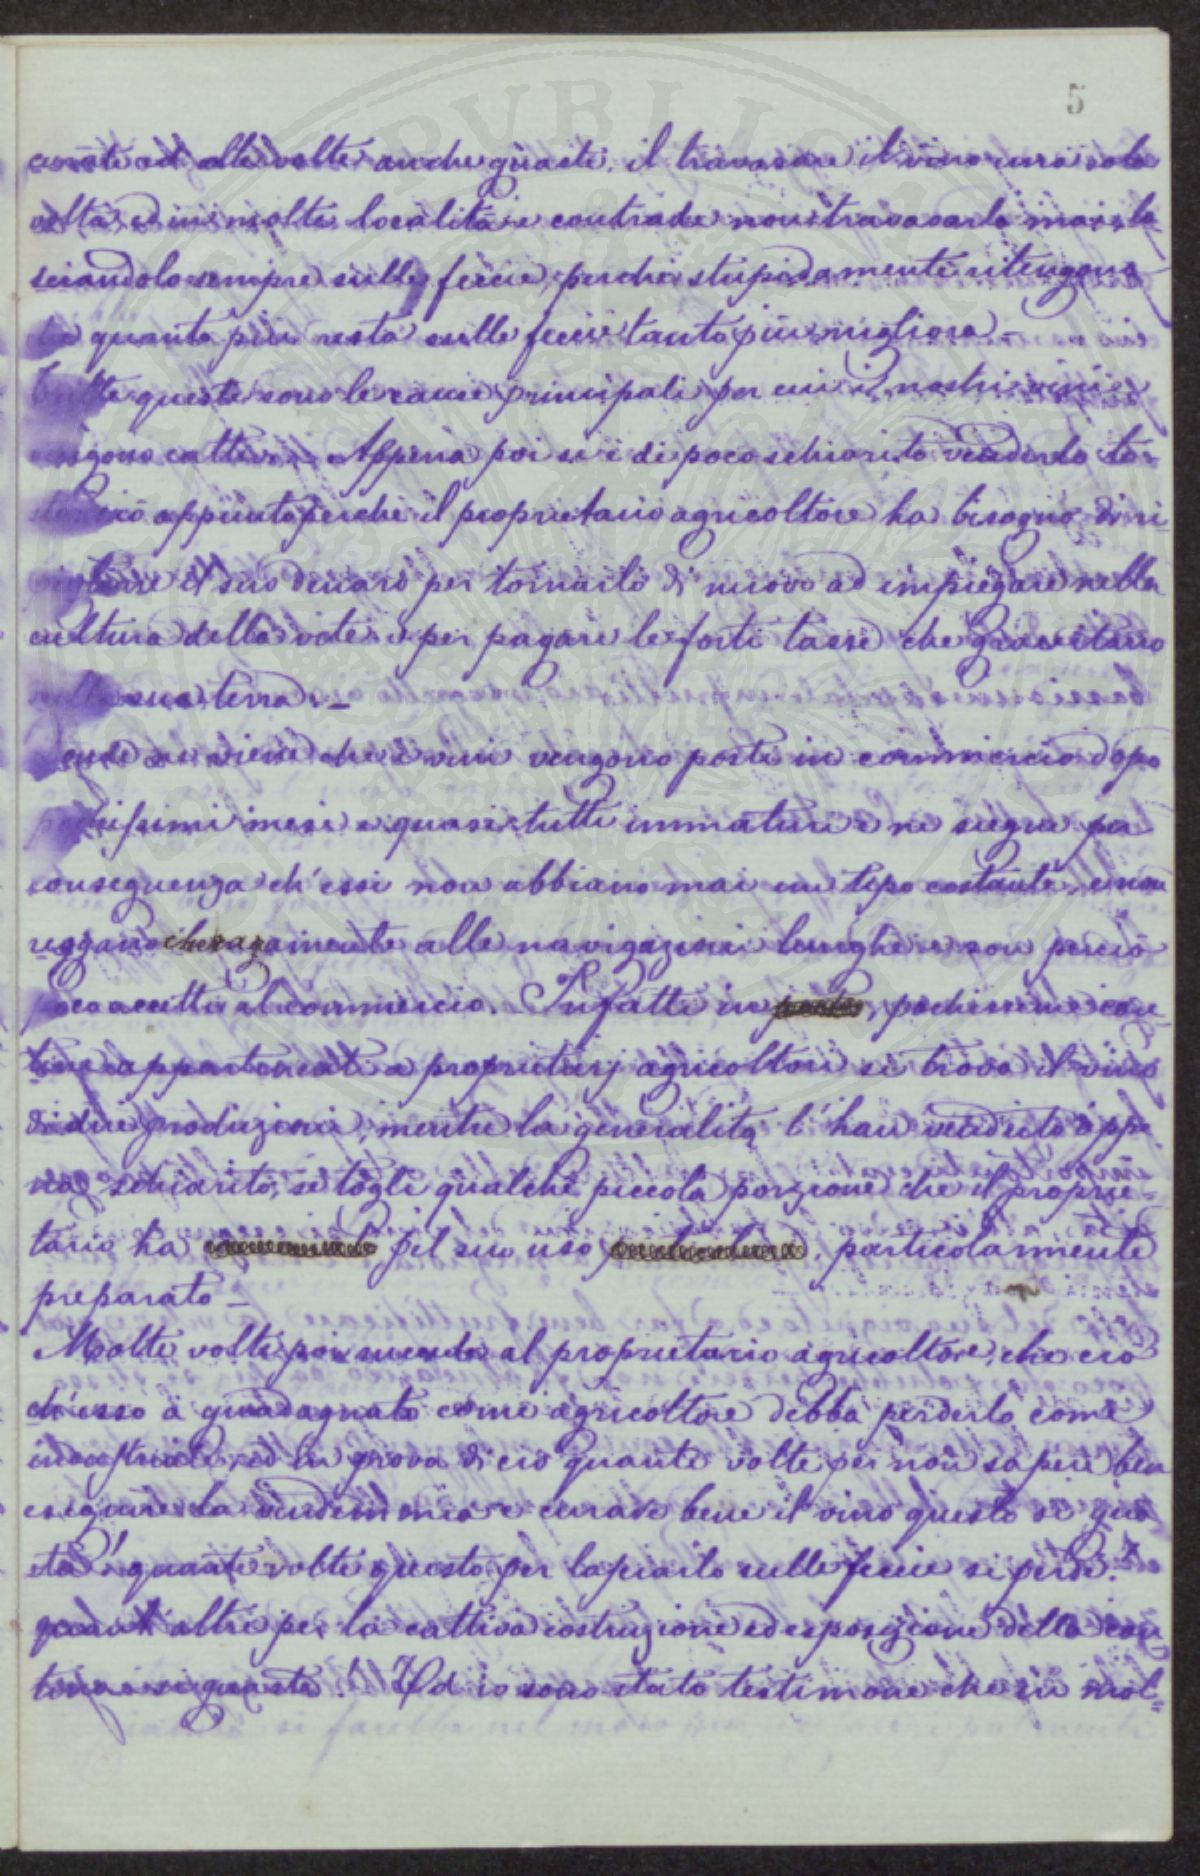 5
ed alle volte anche guasti, il travasare il vino una sola
volta ed in molte località e contrade non travasarlo mai e la-
sciandolo sempre sulle feccie, perchè stupidamente ritengono
quanto più resta sulle feccie tanto più migliora_
queste sono le cause principali per cui i nostri vini
cattivi. Appena poi si è di poco schiarito venderlo to-
ciò appunto perchè il proprietario agricoltore ha bisogno di ri-
il suo denaro per tornarlo di nuovo ad impiegare nella
cultura della vite e per pagare le forti tasse che gravitano
sulla sua terra._
ne viene che i vini vengono posti in commercio dopo
pochissimi mesi e quasi tutti immaturi e ne siegue per
conseguenza ch'essi non abbiano mai un tipo costante, e non
reggano alle navigazioni lunghe e son perciò
poco accetti al commercio. Infatti in pochissime can-
tine appartenenti a proprietarj agricoltori si trova il vino
di due produzioni, mentre la generalità l'han venduto appe-
na schiarito, se togli qualche piccola porzione che il proprie-
tario ha pel suo uso particolarmente
preparato_
Molte volte poi succede al proprietario agricoltore, che ciò
ch'esso à guadagnato come agricoltore debba perderlo come
industriale, ed in prova di ciò quante volte per non sapere ben
eseguire la vendemmia e curare bene il vino questo si gua-
sta! quante volte questo per lasciarlo sulle feccie si perde!
quant'altre per la cattiva costruzione ed esposizione della can-
tina si guasta! Ed io sono stato testimone che in mol-